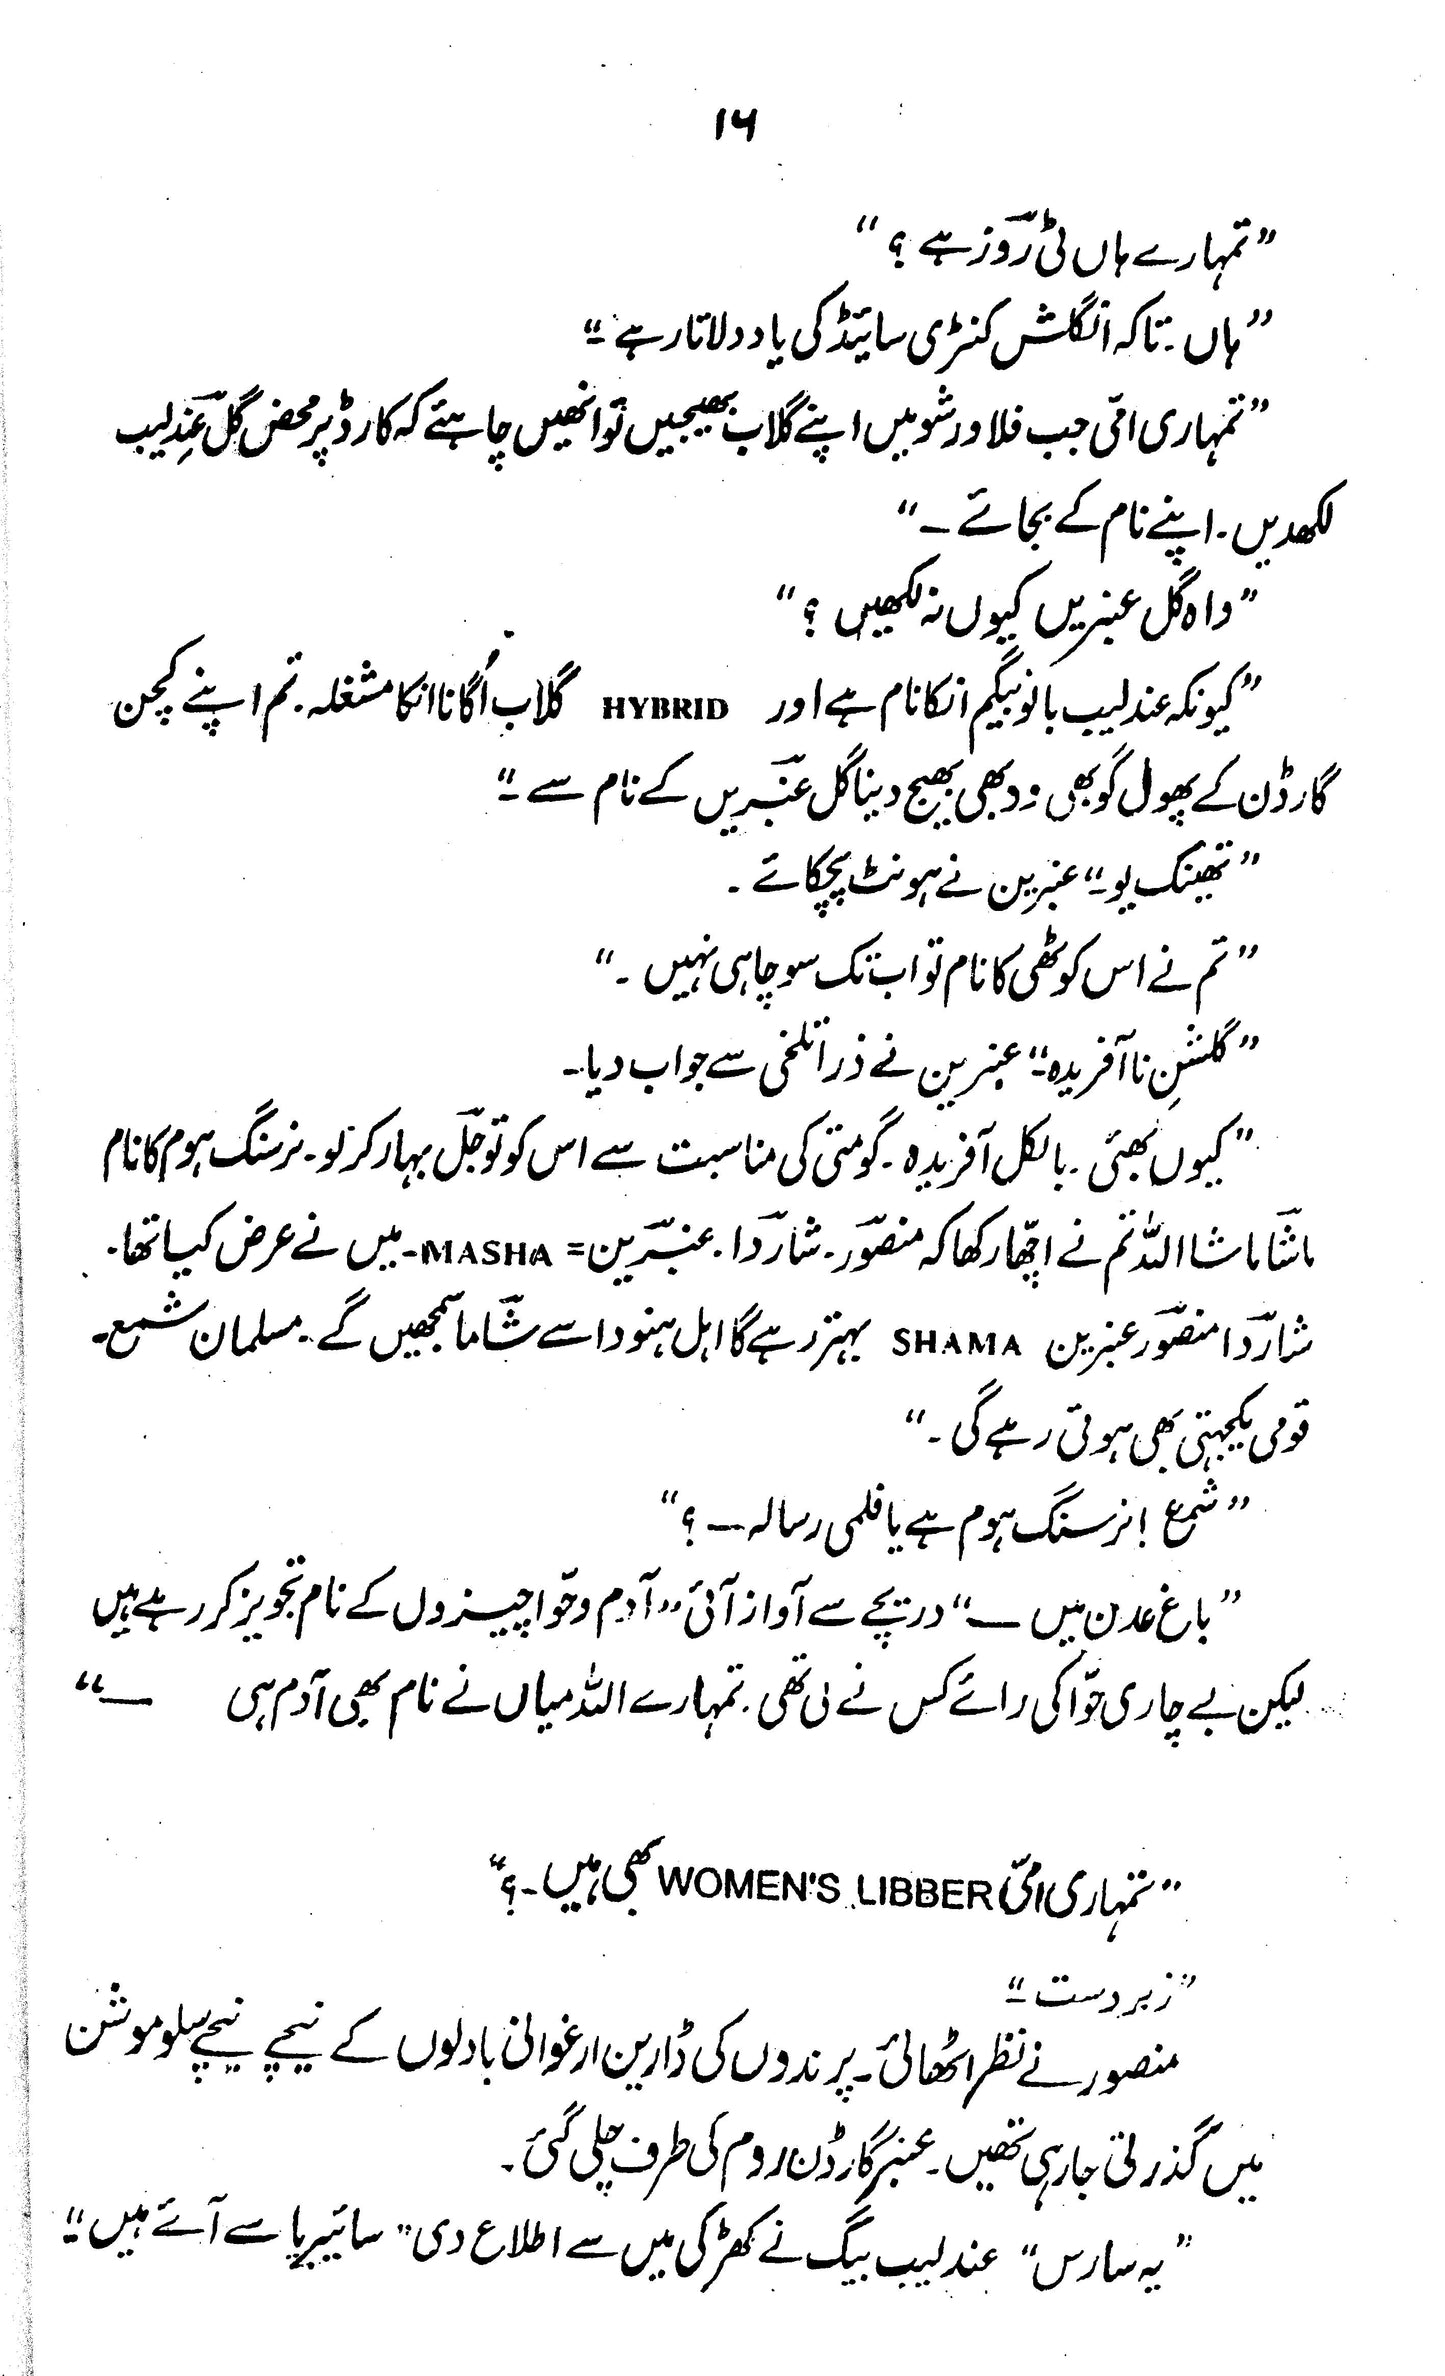 ۱۶
”تمہارے ہاں ٹی روز ہے ؟“
”ہاں۔ تاکہ انگلش کنٹری سائیڈ کی یاد دلاتا رہے۔“
”تمہاری امّی جب فلاور شو میں اپنے گلاب بھیجیں تو انھیں چاہئے کہ کارڈ پر محض گل عندلیب
لکھدیں۔ اپنے نام کے بجائے ــ“
”واہ گل عنبریں کیوں نہ لکھیں ؟“
”کیونکہ عندلیب بانو بیگم انکا نام ہے اور HYBRID گلاب اُگانا انکا مشغلہ۔ تم اپنے کچن
گارڈن کے پھول گوبھی ودبھی بھیج دینا گل عنبریں کے نام سے۔“
”تھینک یو۔“ عنبرین نے ہونٹ پچکائے ۔
”تم نے اس کوٹھی کا نام تو اب تک سوچا ہی نہیں ۔“
”گلشنِ ناآفریدہ۔“ عنبرین نے ذرا تلخی سے جواب دیا۔
”کیوں بھئی ۔ بالکل آفریدہ ۔ گومتی کی مناسبت سے اس کو تو جل بہار کر لو۔ نرسنگ ہوم کا نام
ماشا ماشا اللہ تم نے اچھا رکھا کہ منصور۔ شاردا۔ عنبرین = MASHA۔ میں نے عرض کیا تھا۔
شاردا منصور عنبرین SHAMA بہتر رہے گا اہل ہنود اسے شاما سمجھیں گے ۔ مسلمان شمع۔
قومی یکجہتی بھی ہوتی رہے گی ۔“
”شمع ! نرسنگ ہوم ہے یا فلمی رسالہ ــ ؟“
”باغ عدن میں ــ“ دریچے سے آواز آئی ”آدم و حوّا چیزوں کے نام تجویز کر رہے ہیں
لیکن بے چاری حوّا کی رائے کس نے لی تھی ۔ تمہارے اللہ میاں نے نام بھی آدم ہی ــ“
”تمہاری امّی WOMEN'S LIBBER بھی ہیں ۔؟“
”زبردست۔“
منصور نے نظر اٹھائی۔ پرندوں کی ڈاریں ارغوانی بادلوں کے نیچے نیچے سلو موشن
میں گذرتی جا رہی تھیں ۔ عنبر گارڈن روم کی طرف چلی گئی ۔
”یہ سارس“ عندلیب بیگ نے کھڑکی میں سے اطلاع دی ”سائیبریا سے آئے ہیں۔“